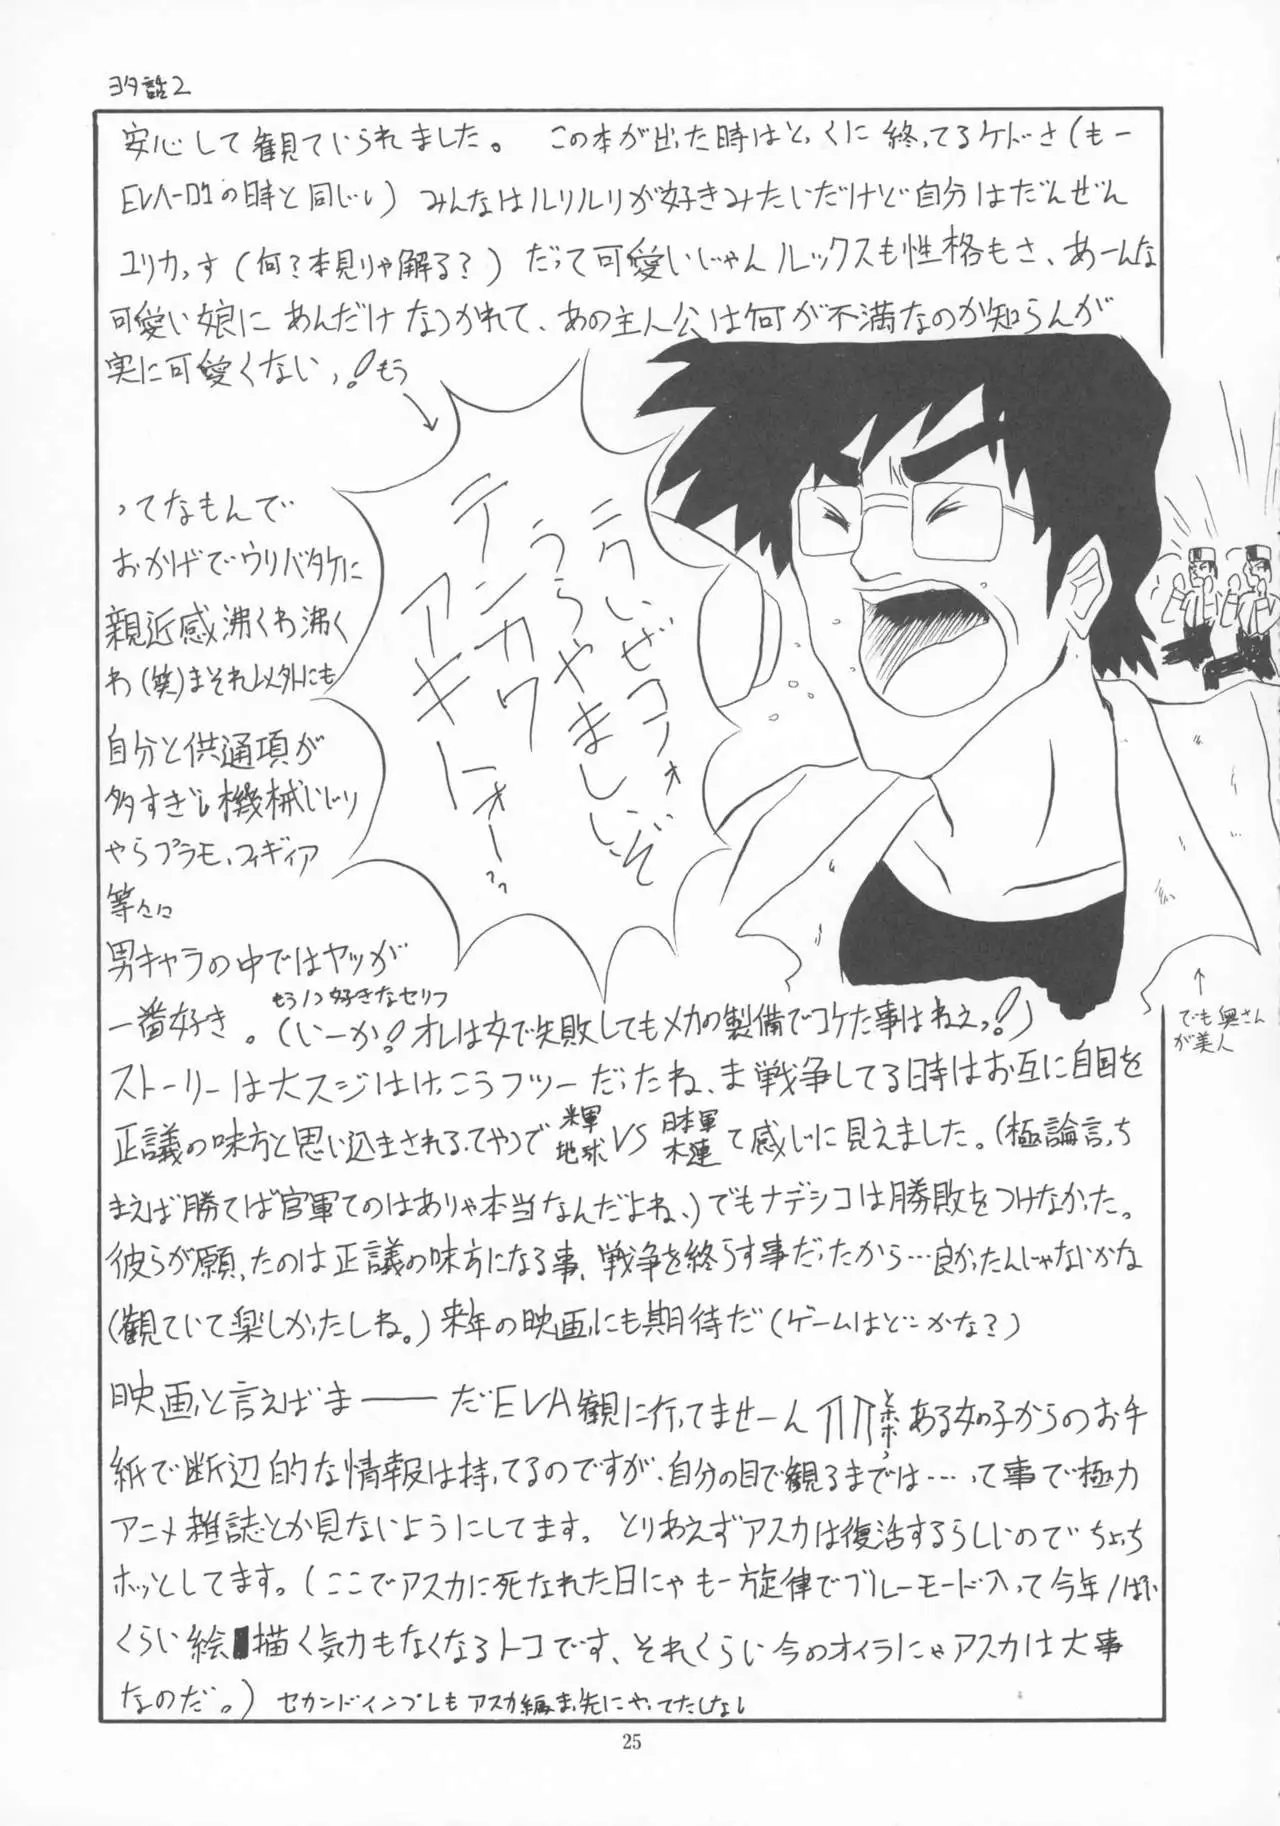 ヨタ話2
安心して観ていられました。 この本が出た時はとっくに終ってるケドさ(もー
EVA-01の時と同じい)みんなはルリルリが好きみたいだけど自分はだんぜん
ユリカっす(何?本見りゃ解る?)だって可愛いじゃんルックスも性格もさ、あーんな
可愛い娘にあんだけなつかれて、あの主人公は何が不満なのか知らんが
実に可愛くないっ!もう
ニクいぜコノォ
うらやましいぞ
テンカワ
アキトォーっ
ってなもんで
おかげでウリバタケに
親近感沸くわ沸く
わ(笑)まそれ以外にも
自分と供通項が
多すぎし機械いじり
やらプラモ、フィギィア
等々に
男キャラの中ではヤツが
もう1つ好きなセリフ
一番好き。(いーか!オレは女で失敗してもメカの製備でコケた事はねえっ!)
でも奥さん
が美人
ストーリーは大スジはけっこうフツーだったね、ま戦争してる日時はお互に自国を
正議の味方と思い込まされるってやつで米軍地球VS日本軍木連て感じに見えました。(極論言っち
まえば勝てば官軍てのはありゃ本当なんだよね、)でもナデシコは勝敗をつけなかった。
彼らが願ったのは正議の味方になる事、戦争を終らす事だったから…良かったんじゃないかな
(観ていて楽しかったしね。)来年の映画にも期待だ(ゲームはどこかな?)
映画と言えばま――だEVA観に行ってませーん トホホっ ある女の子からのお手
紙で断辺的な情報は持ってるのですが、自分の目で観るまでは……って事で極力
アニメ雑誌とか見ないようにしてます。とりあえずアスカは復活するらしいのでちょっち
ホッとしてます。(ここでアスカに死なれた日にゃもー方旋律でブルーモード入って今年1ぱい
くらい絵描く気力もなくなるトコです、それくらい今のオイラにゃアスカは大事
なのだ。)セカンドインプレもアスカ編まっ先にやってたしなし
25